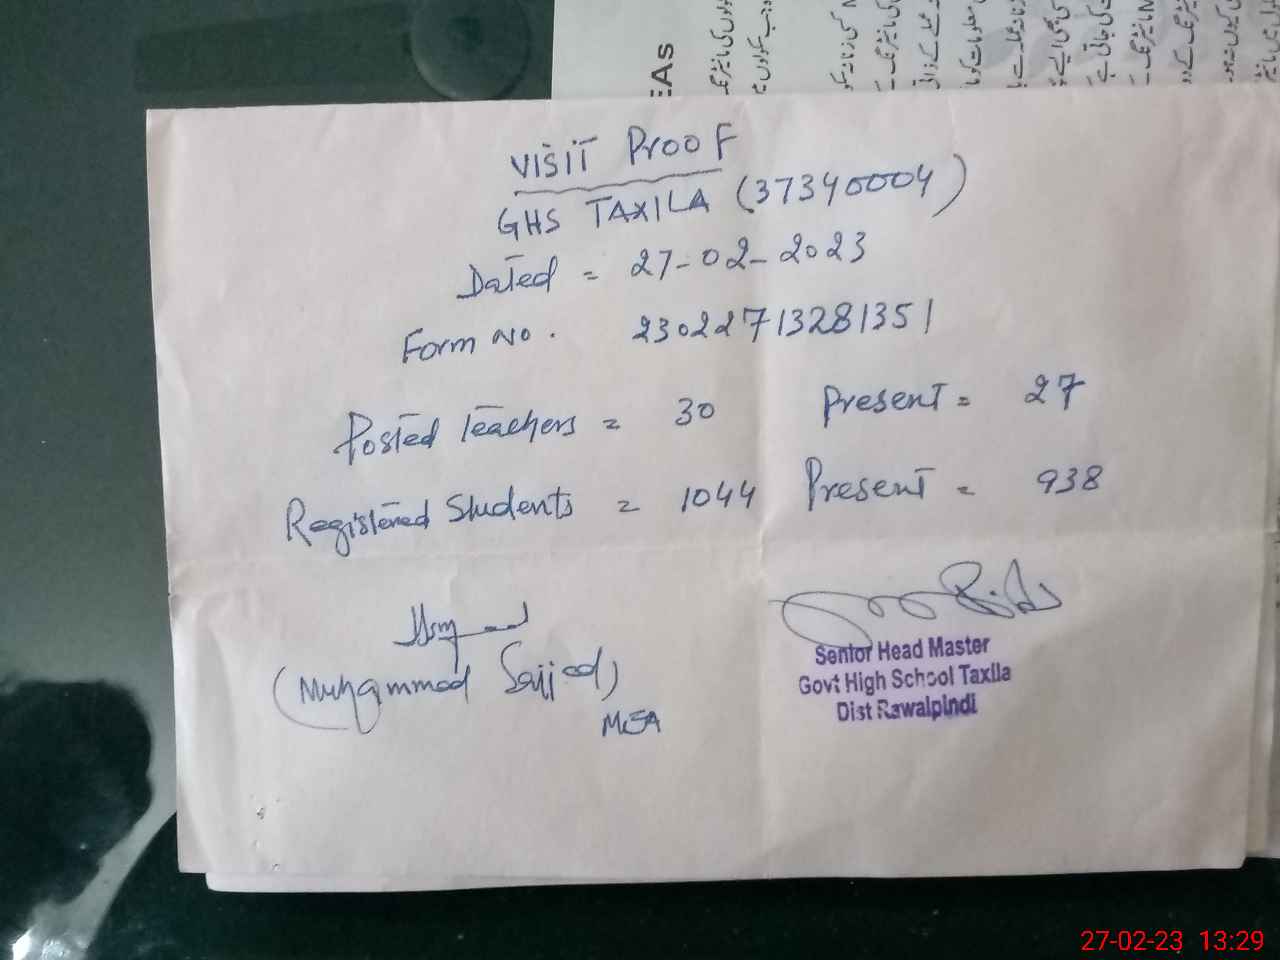 EAs
VISIT PROOF
GHS TAXILA (37340004)
Dated = 27-02-2023
Form No. 23022713281351
Posted Teachers = 30 Present = 27
Registered Students = 1044 Present = 938
(Muhammad Sajjad)
MEA
Senior Head Master
Govt High School Taxila
Dist Rawalpindi
27-02-23 13:29